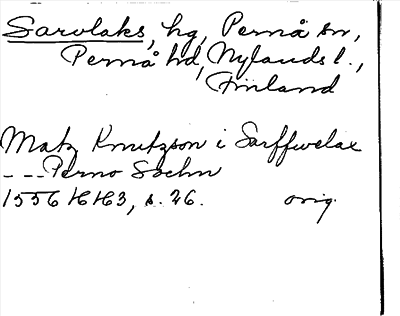 Sarvlaks, hg, Pernå sn,
Pernå hd, Nylands l.,
Finland
Matz Knutzson i Sarffwelax
---Perno Sochn
1556 16163, s. 26. orig.